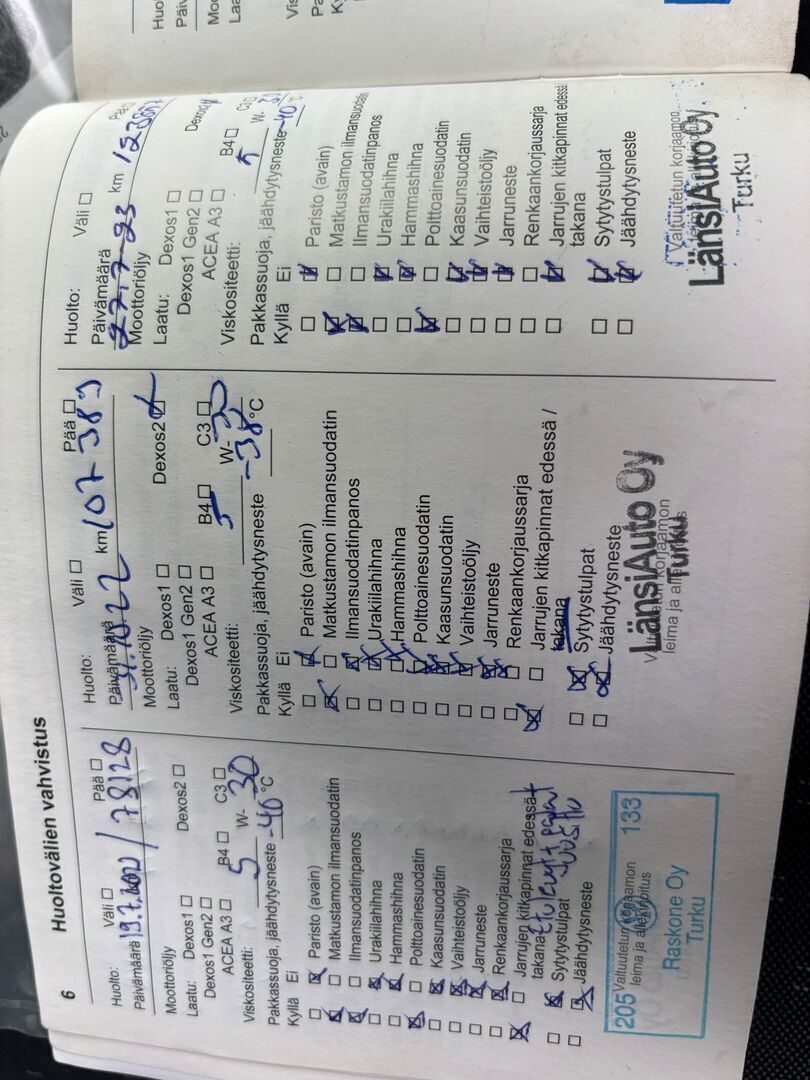 6
Huoltovälien vahvistus
Huolto: Väli Pää
Päivämäärä 19.7. / 78128
Moottoriöljy
Laatu: Dexos1 Dexos2
Dexos1 Gen2
ACEA A3 B4 C3
Viskositeetti: 5 W- 30
Pakkassuoja, jäähdytysneste -40 °C
Kyllä Ei
Paristo (avain)
Matkustamon ilmansuodatin
Ilmansuodatinpanos
Urakiilahihna
Hammashihna
Polttoainesuodatin
Kaasunsuodatin
Vaihteistoöljy
Jarruneste
Renkaankorjaussarja
Jarrujen kitkapinnat edessä +
takana
Sytytystulpat
Jäähdytysneste
205 133
Valtuutetun korjaamon
leima ja allekirjoitus
Raskone Oy
Turku
Huolto: Väli Pää
Päivämäärä km 107 389
Moottoriöljy
Laatu: Dexos1 Dexos2
Dexos1 Gen2
ACEA A3 B4 C3
Viskositeetti: 5 W- 30
Pakkassuoja, jäähdytysneste -38 °C
Kyllä Ei
Paristo (avain)
Matkustamon ilmansuodatin
Ilmansuodatinpanos
Urakiilahihna
Hammashihna
Polttoainesuodatin
Kaasunsuodatin
Vaihteistoöljy
Jarruneste
Renkaankorjaussarja
Jarrujen kitkapinnat edessä /
takana
Sytytystulpat
Jäähdytysneste
LänsiAuto Oy
Turku
leima ja
Huolto: Väli
Päivämäärä 27.7.23 km
Moottoriöljy
Laatu: Dexos1
Dexos1 Gen2
ACEA A3 B4
Viskositeetti: 5 W-
Pakkassuoja, jäähdytysneste -40 °C
Kyllä Ei
Paristo (avain)
Matkustamon ilmansuodatin
Ilmansuodatinpanos
Urakiilahihna
Hammashihna
Polttoainesuodatin
Kaasunsuodatin
Vaihteistoöljy
Jarruneste
Renkaankorjaussarja
Jarrujen kitkapinnat edessä
takana
Sytytystulpat
Jäähdytysneste
Valtuutetun korjaamon
LänsiAuto Oy
Turku